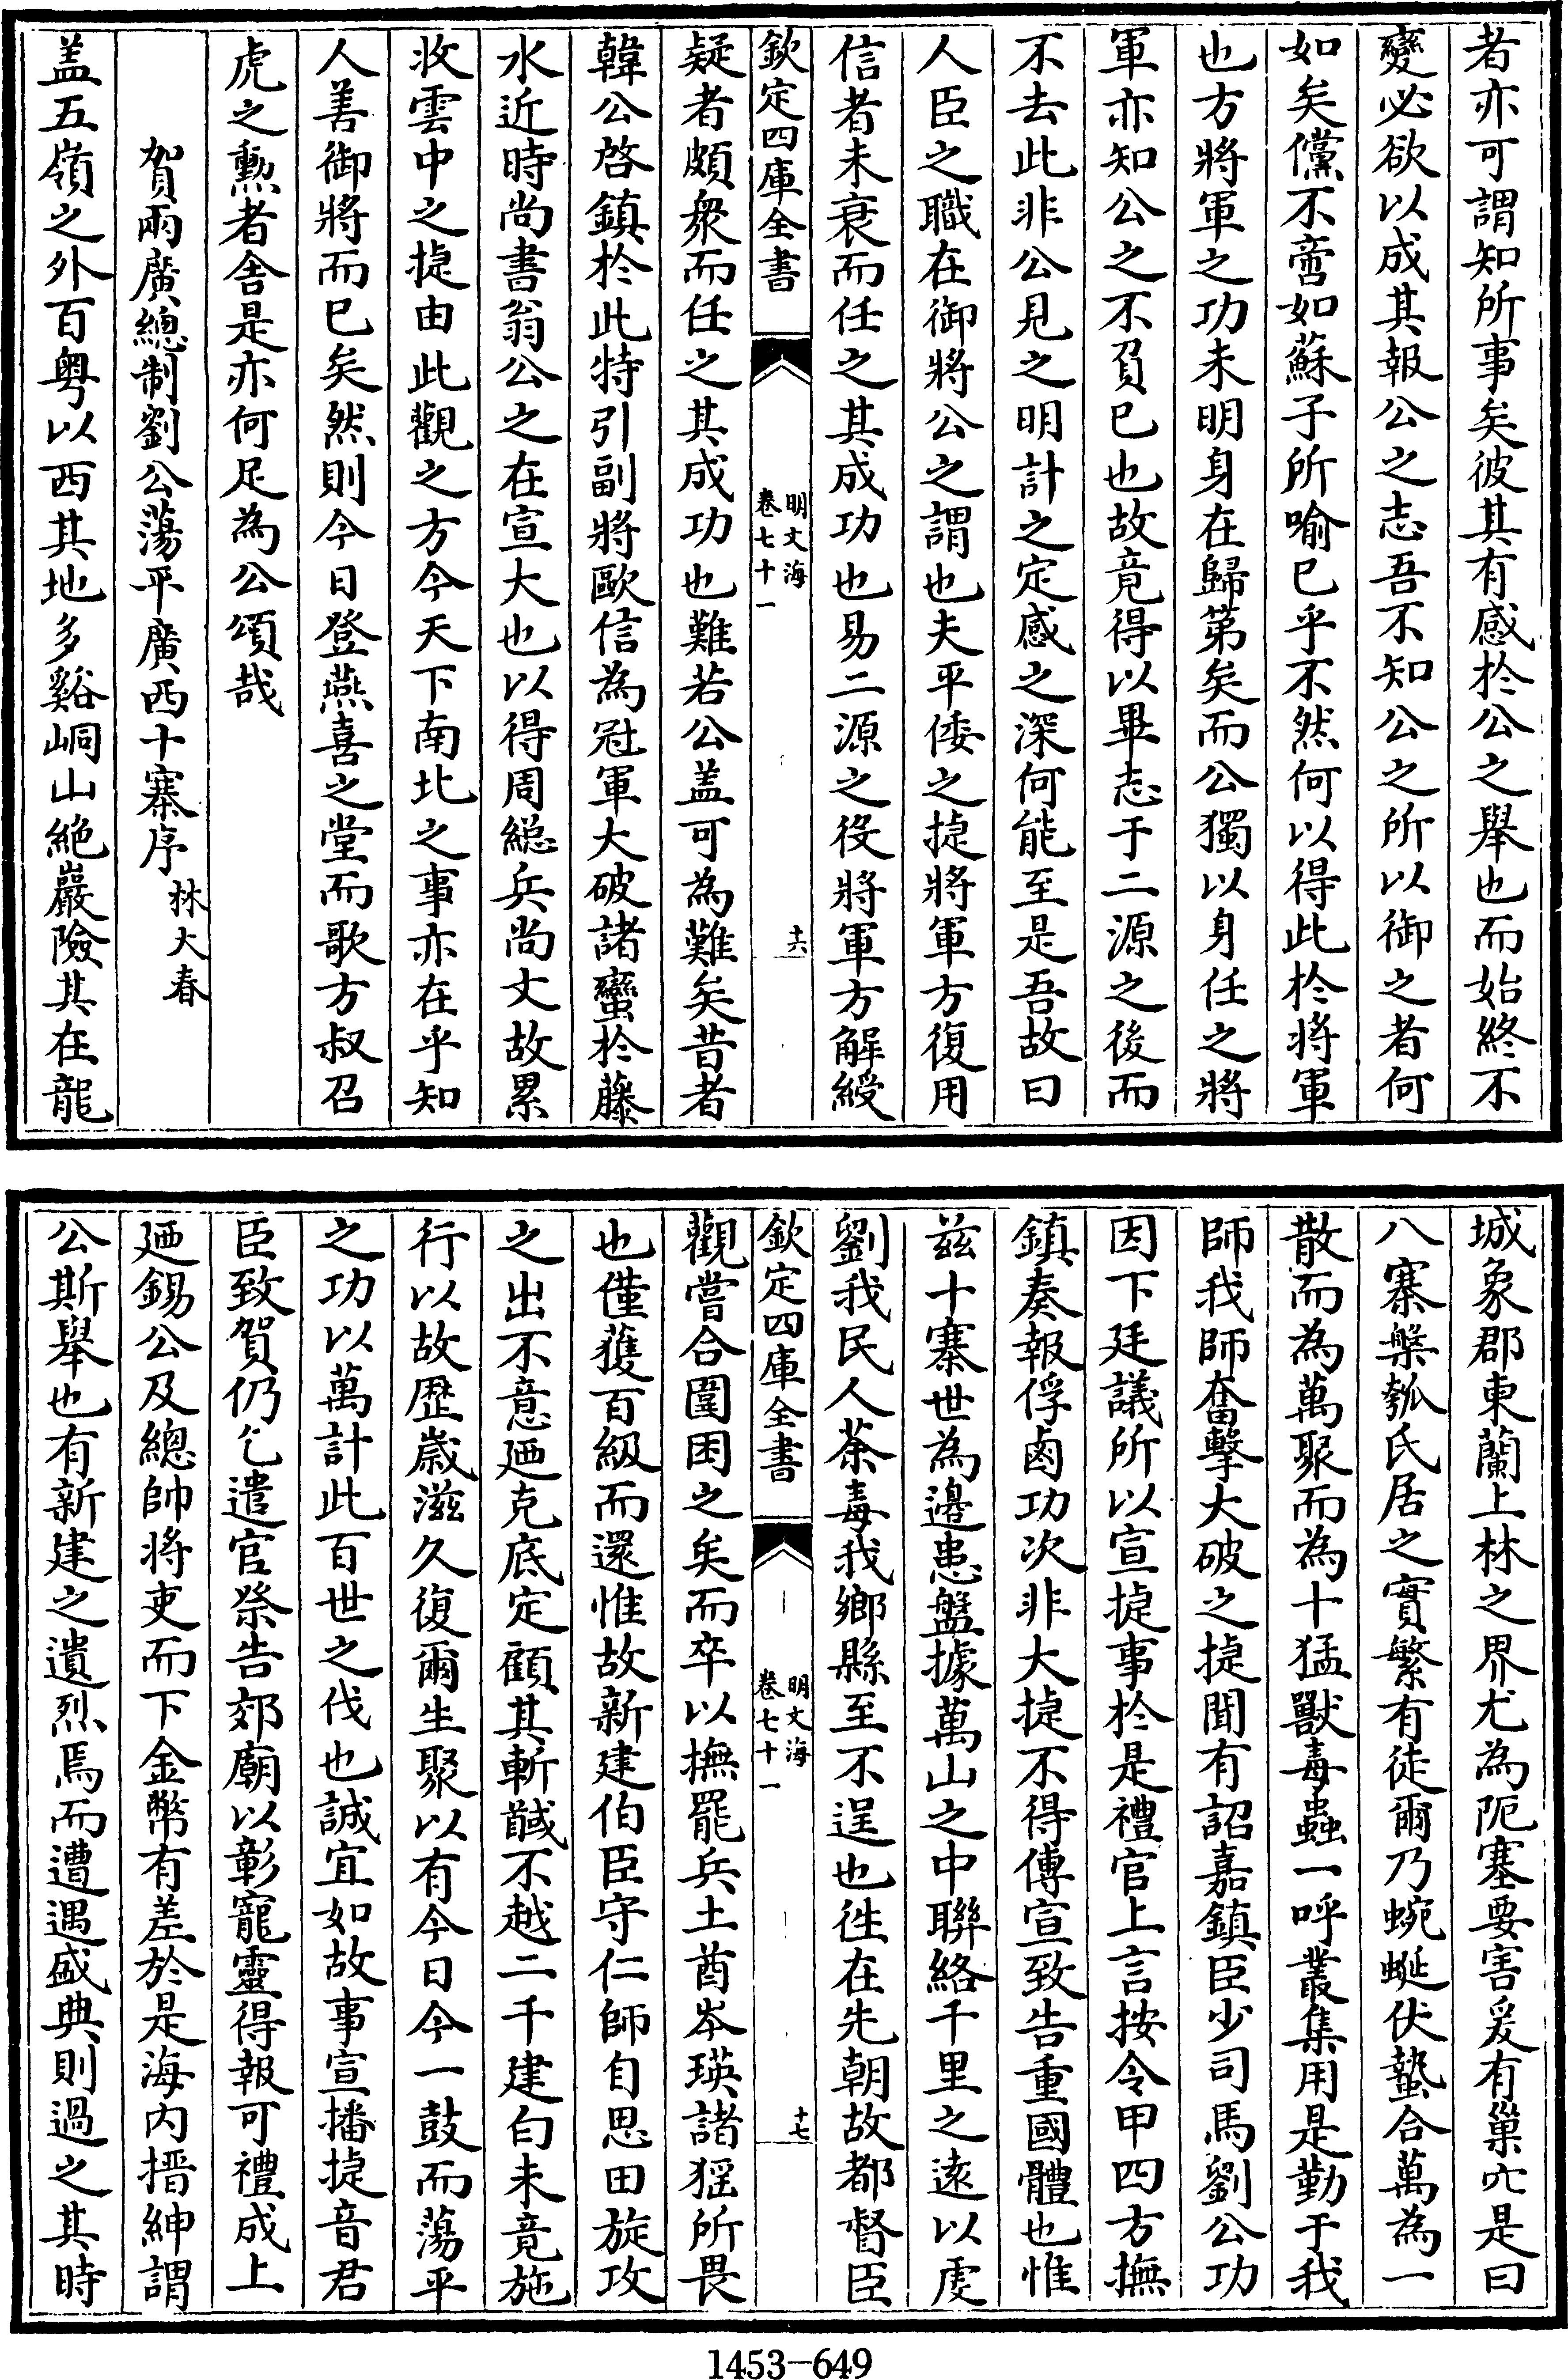 者亦可謂知所事矣彼其有感於公之舉也而始終不
變必欲以成其報公之志吾不知公之所以御之者何
如矣儻不啻如蘇子所喻已乎不然何以得此於將軍
也方將軍之功未明身在歸第矣而公獨以身任之將
軍亦知公之不負已也故竟得以畢志于二源之後而
不去此非公見之明計之定感之深何能至是吾故曰
人臣之職在御將公之謂也夫平倭之捷將軍方復用
信者未衰而任之其成功也易二源之役將軍方解綬
欽定四庫全書
明文海
卷七十一
十六
疑者頗衆而任之其成功也難若公盖可為難矣昔者
韓公啓鎮於此特引副將歐信為冠軍大破諸蠻於藤
水近時尚書翁公之在宣大也以得周總兵尚文故累
收雲中之捷由此觀之方今天下南北之事亦在乎知
人善御將而已矣然則今日登燕喜之堂而歌方叔召
虎之勲者舍是亦何足為公頌哉
賀兩廣總制劉公蕩平廣西十寨序
林大春
盖五嶺之外百粤以西其地多谿峒山絶巖險其在龍
城象郡東蘭上林之界尤為阨塞要害爰有巢穴是曰
八寨槃瓠氏居之實繁有徒爾乃蜿蜒伏蟄合萬為一
散而為萬聚而為十猛獸毒蟲一呼叢集用是勤于我
師我師奮擊大破之捷聞有詔嘉鎮臣少司馬劉公功
因下廷議所以宣捷事於是禮官上言按令甲四方撫
鎮奏報俘鹵功次非大捷不得傳宣致告重國體也惟
兹十寨世為邊患盤據萬山之中聯絡千里之遠以虔
劉我民人荼毒我鄉縣至不逞也徃在先朝故都督臣
欽定四庫全書
明文海
卷七十一
十七
觀嘗合圍困之矣而卒以撫罷兵土酋岑瑛諸猺所畏
也僅獲百級而還惟故新建伯臣守仁師自思田旋攻
之出不意廼克底定顧其斬馘不越二千建白未竟施
行以故歴歲滋久復爾生聚以有今日今一鼓而蕩平
之功以萬計此百世之伐也誠宜如故事宣播捷音君
臣致賀仍乞遣官祭告郊廟以彰寵靈得報可禮成上
廼錫公及總帥將吏而下金幣有差於是海内搢紳謂
公斯舉也有新建之遺烈焉而遭遇盛典則過之其時
1453—649